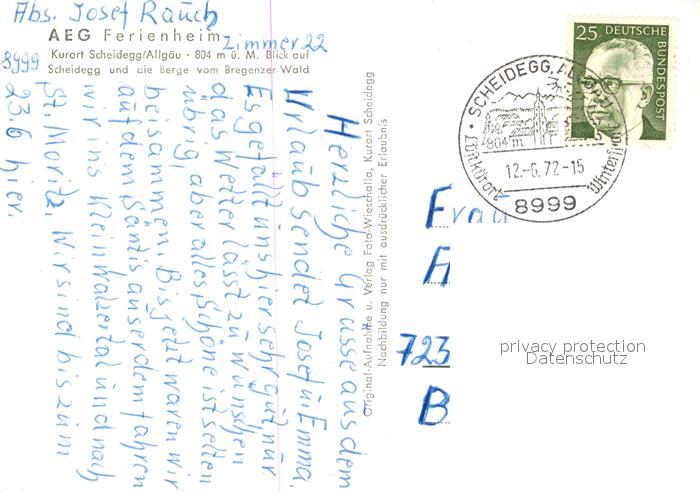 Abs. Josef Rauch
AEG Ferienheim
Zimmer 22
8999
Kurort Scheidegg/Allgäu · 804 m ü. M. Blick auf
Scheidegg und die Berge vom Bregenzer Wald
Herzliche Grüsse aus dem
Urlaub sendet Josef u. Emma.
Es gefällt uns hier sehr gut nur
das Wetter lässt zu wünschen
übrig, aber alles Schöne ist selten
beisammen. Bis jetzt waren wir
auf dem Säntis auserdem fahren
wir ins Kleinwalzertal und nach
St. Moritz. Wir sind bis zum
23.6 hier.
Original-Aufnahme u. Verlag Foto-Wieschalla, Kurort Scheidegg
Nachbildung nur mit ausdrücklicher Erlaubnis
25 DEUTSCHE
BUNDESPOST
SCHEIDEGG, ALLGÄU
804 m
12.-6.72-15
Luftkurort
8999
Frau
A
723
B
privacy protection
Datenschutz